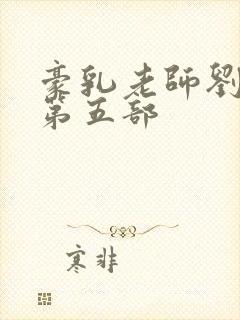 豪乳老師劉
第五部
寒非